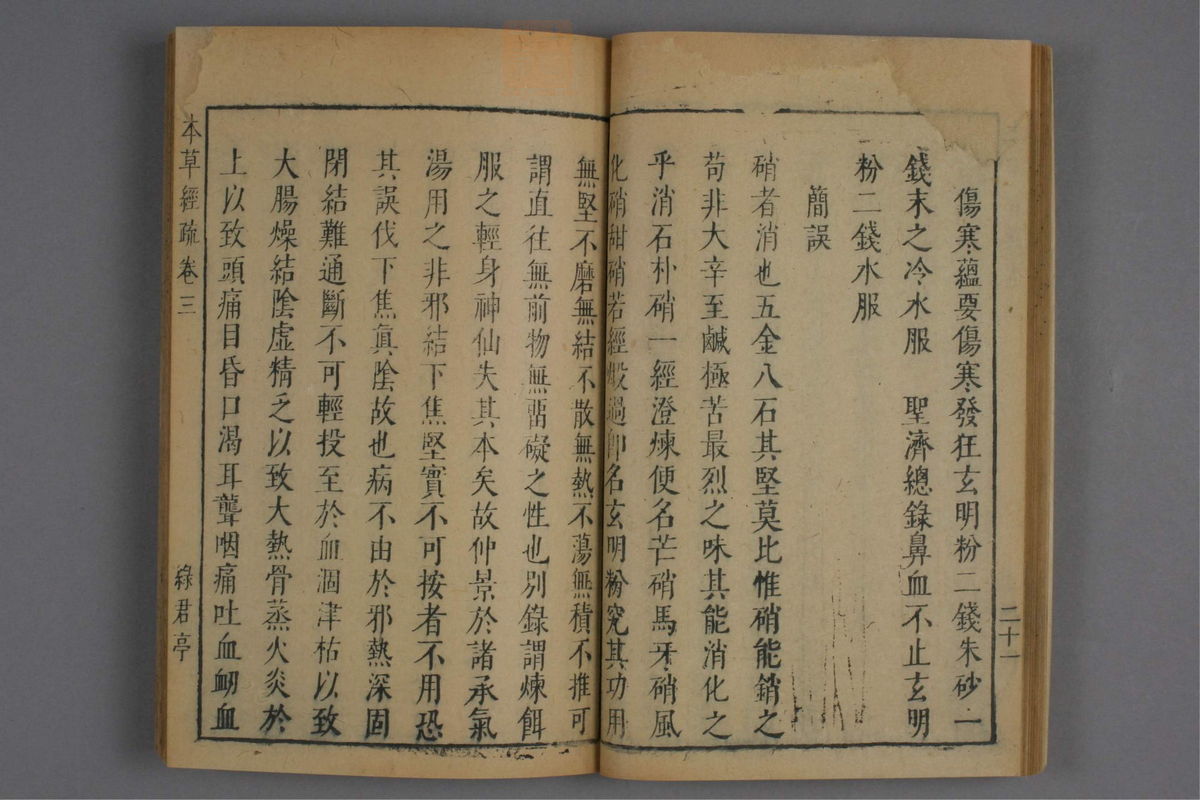 傷寒蘊要傷寒發狂玄明粉二錢朱砂一
錢末之冷水服　聖濟總錄鼻血不止玄明
粉二錢水服
簡誤
硝者消也五金八石其堅莫比惟硝能銷之
苟非大辛至鹹極苦最烈之味其能消化之
乎消石朴硝一經澄煉便名芒硝馬牙硝風
化硝甜硝若經煅過即名玄明粉究其功用
無堅不磨無結不散無熱不蕩無積不推可
謂直往無前物無畱礙之性也別錄謂煉餌
服之輕身神仙失其本矣故仲景於諸承氣
湯用之非邪結下焦堅實不可按者不用恐
其誤伐下焦眞陰故也病不由於邪熱深固
閉結難通斷不可輕投至於血涸津枯以致
大腸燥結陰虛精乏以致大熱骨蒸火炎於
上以致頭痛目昏口渴耳聾咽痛吐血衂血
二十一
本草經疏卷三
綠君亭